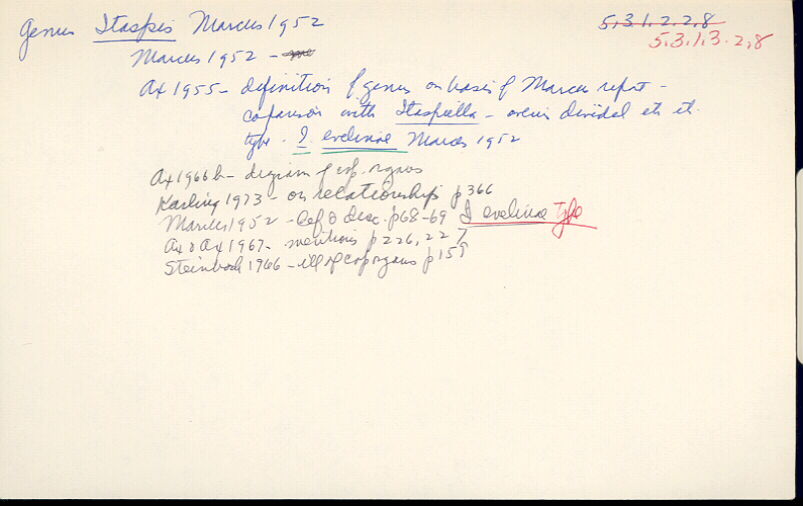 Genus Itaspis Marcus 1952
5.3.1.2.2.8
5.3.1.3.2.8
Marcus 1952 -
Ax 1955 - definition of genus on basis of Marcus report -
comparison with Itaspiella - ovein divided etc et.
type. I. evelinae Marcus 1952
Ax 1966b - diagram of cop. organs
Karling 1973 - on relationships p 366
Marcus 1952 - def & desc. p68-69 I evelinae Type
Ax & Ax 1967 - mentions p 226, 227
Steinböck 1966 - ill of cop organs p 159